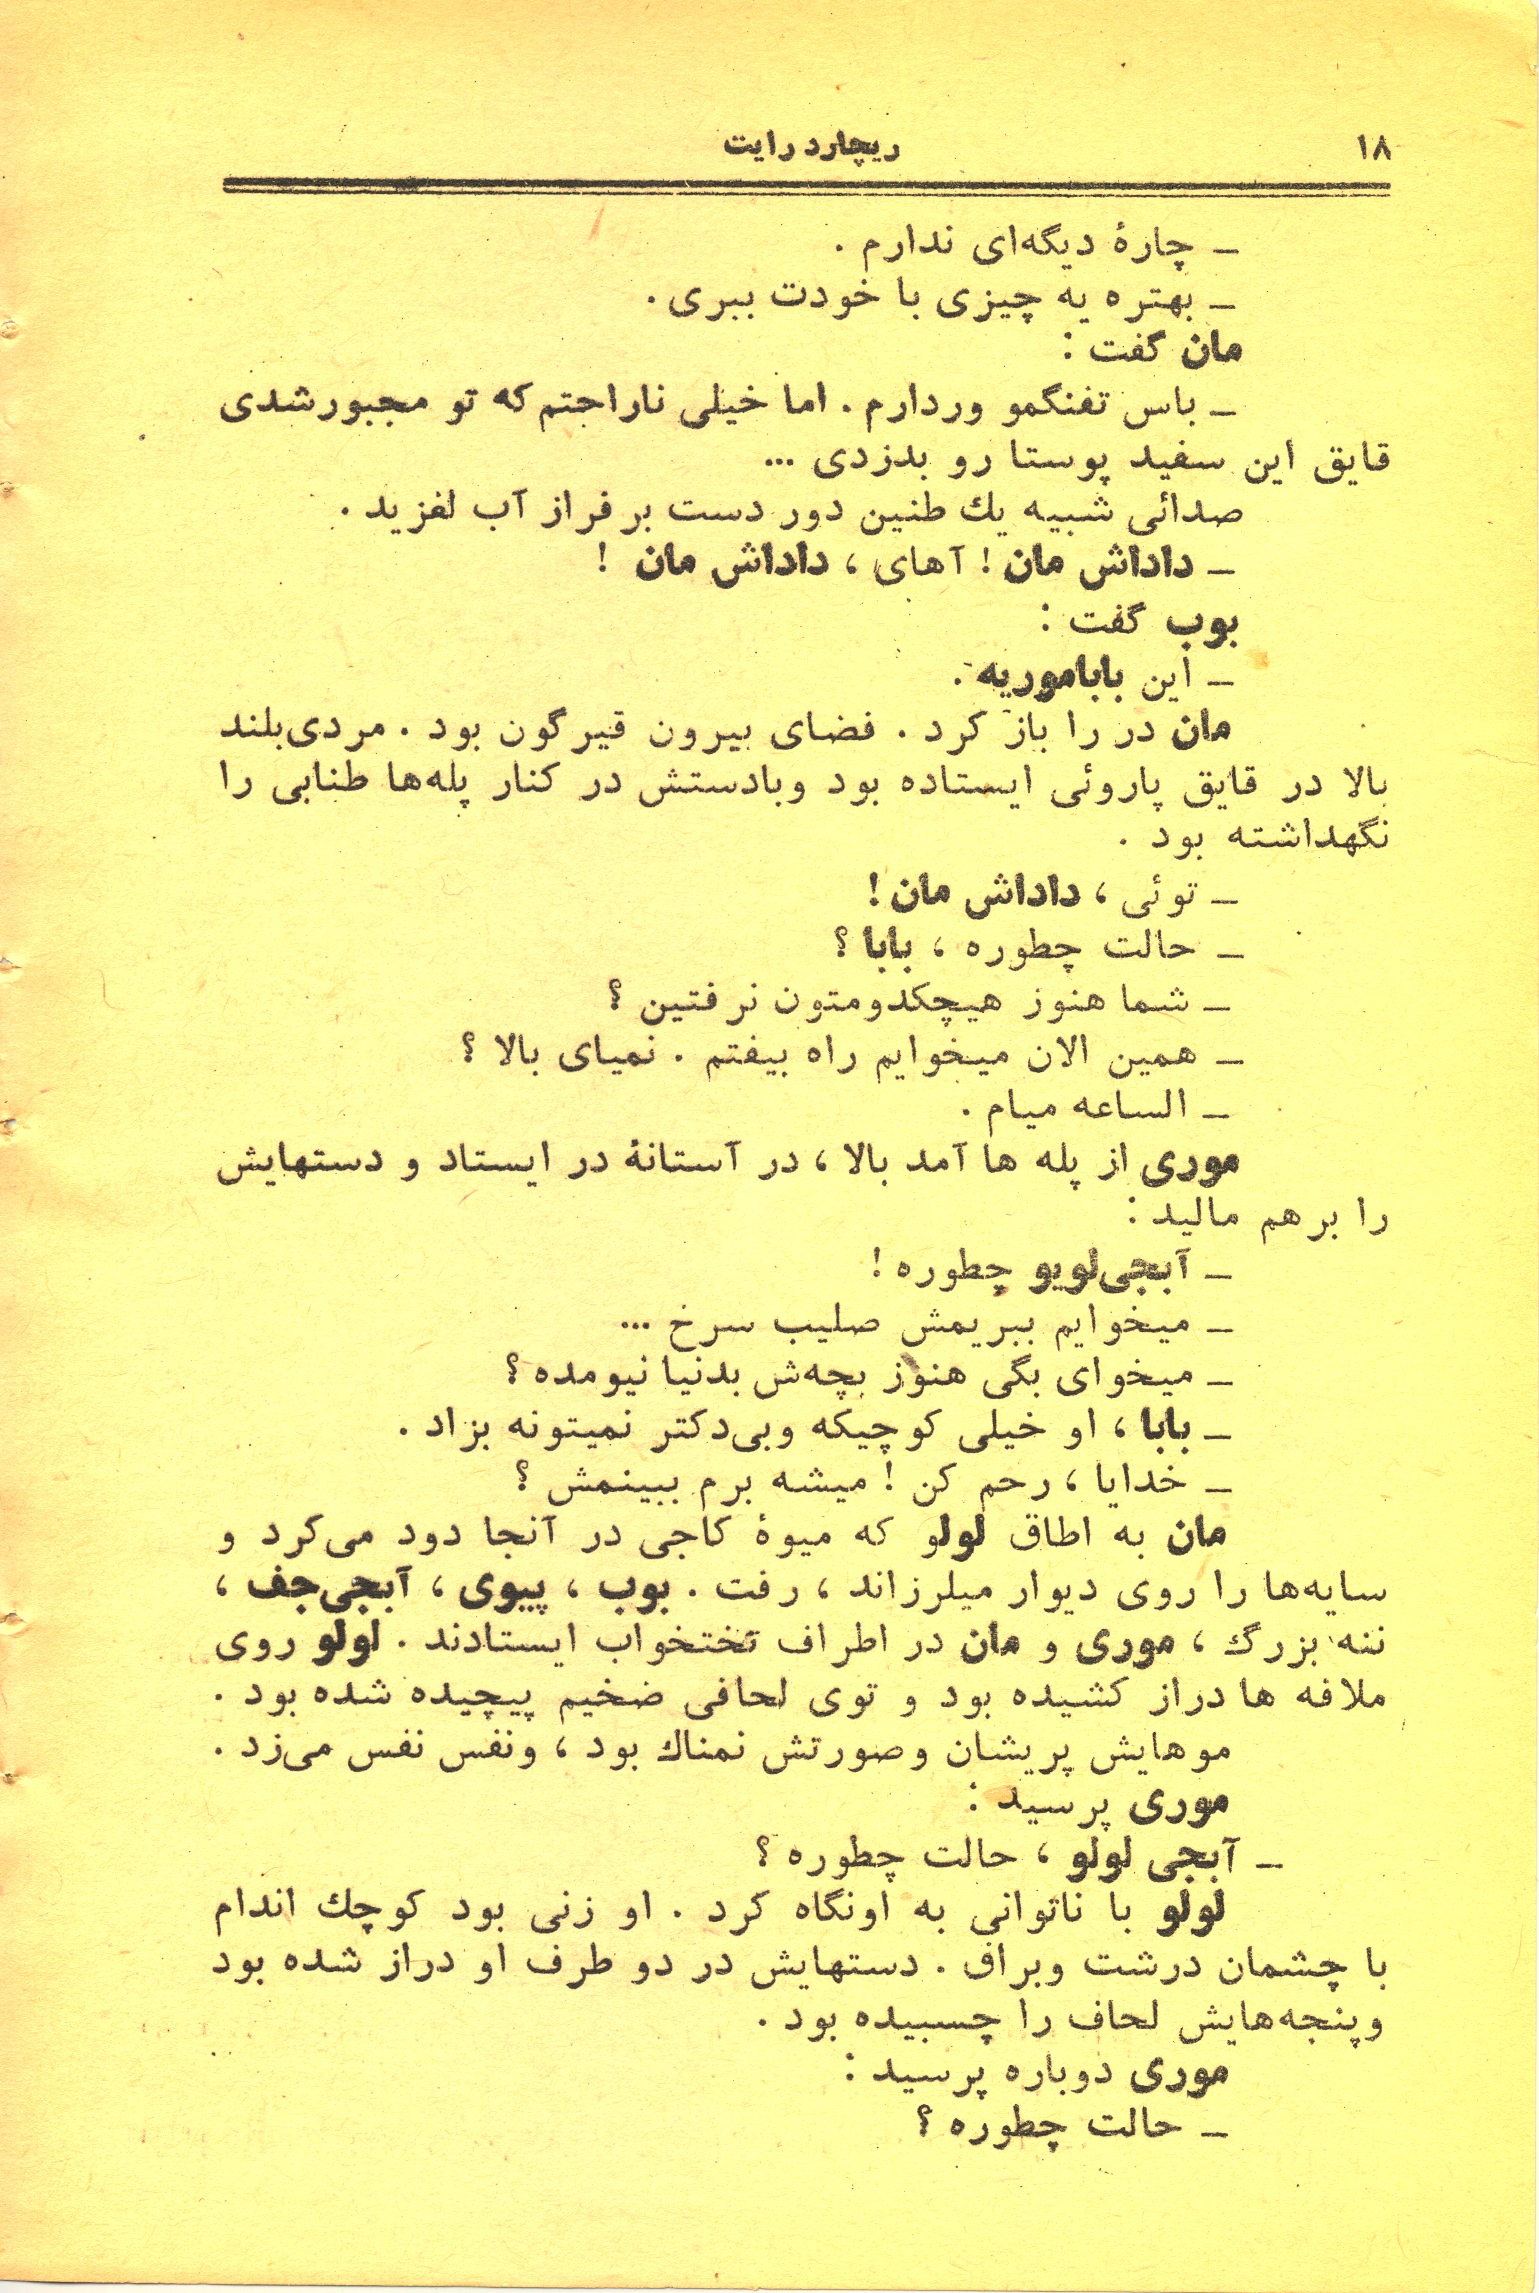 ۱۸
ریچارد رایت
ـ چارهٔ دیگه‌ای ندارم .
ـ بهتره یه چیزی با خودت ببری .
مان گفت :
ـ باس تفنگمو وردارم . اما خیلی ناراجتم که تو مجبورشدی
قایق این سفید پوستا رو بدزدی ...
صدائی شبیه یك طنین دور دست بر فراز آب لغزید .
ـ داداش مان ! آهای ، داداش مان !
بوب گفت :
ـ این باباموریه .
مان در را باز کرد . فضای بیرون قیرگون بود . مردی‌بلند
بالا در قایق پاروئی ایستاده بود وبادستش در کنار پله‌ها طنابی را
نگهداشته بود .
ـ توئی ، داداش مان !
ـ حالت چطوره ، بابا ؟
ـ شما هنوز هیچکدومتون نرفتین ؟
ـ همین الان میخوایم راه بیفتم . نمیای بالا ؟
ـ الساعه میام .
موری از پله ها آمد بالا ، در آستانهٔ در ایستاد و دستهایش
را برهم مالید :
ـ آبجی‌لویو چطوره !
ـ میخوایم ببریمش صلیب سرخ ...
ـ میخوای بگی هنوز بچه‌ش بدنیا نیومده ؟
ـ بابا ، او خیلی کوچیکه وبی‌دکتر نمیتونه بزاد .
ـ خدایا ، رحم کن ! میشه برم ببینمش ؟
مان به اطاق لولو که میوهٔ کاجی در آنجا دود می‌کرد و
سایه‌ها را روی دیوار میلرزاند ، رفت . بوب ، پیوی ، آبجی‌جف ،
ننه بزرگ ، موری و مان در اطراف تختخواب ایستادند . لولو روی
ملافه ها دراز کشیده بود و توی لحافی ضخیم پیچیده شده بود .
موهایش پریشان وصورتش نمناك بود ، ونفس نفس می‌زد .
موری پرسید :
ـ آبجی لولو ، حالت چطوره ؟
لولو با ناتوانی به اونگاه کرد . او زنی بود کوچك اندام
با چشمان درشت وبراق . دستهایش در دو طرف او دراز شده بود
وپنجه‌هایش لحاف را چسبیده بود .
موری دوباره پرسید :
ـ حالت چطوره ؟